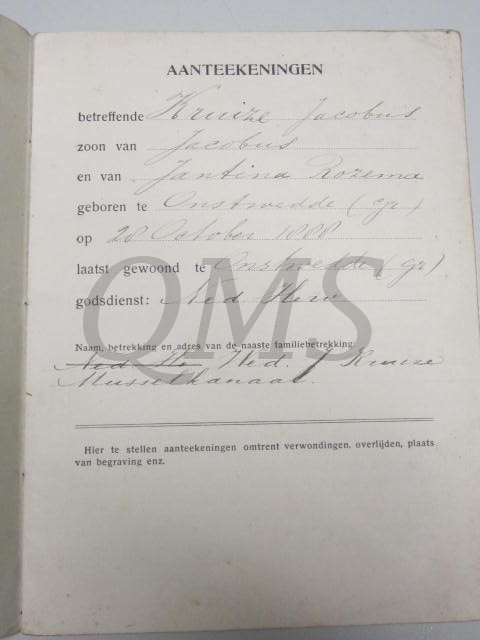 AANTEEKENINGEN
betreffende Kruize Jacobus
zoon van Jacobus
en van Jantina Rozema
geboren te Onstwedde (gr)
op 28 October 1888
laatst gewoond te Onstwedde (gr).
godsdienst: Ned Herv
QMS
Naam, betrekking en adres van de naaste familiebetrekking
Ned He Wed. J Kruize
Musselkanaal.
Hier te stellen aanteekeningen omtrent verwondingen, overlijden, plaats
van begraving enz.